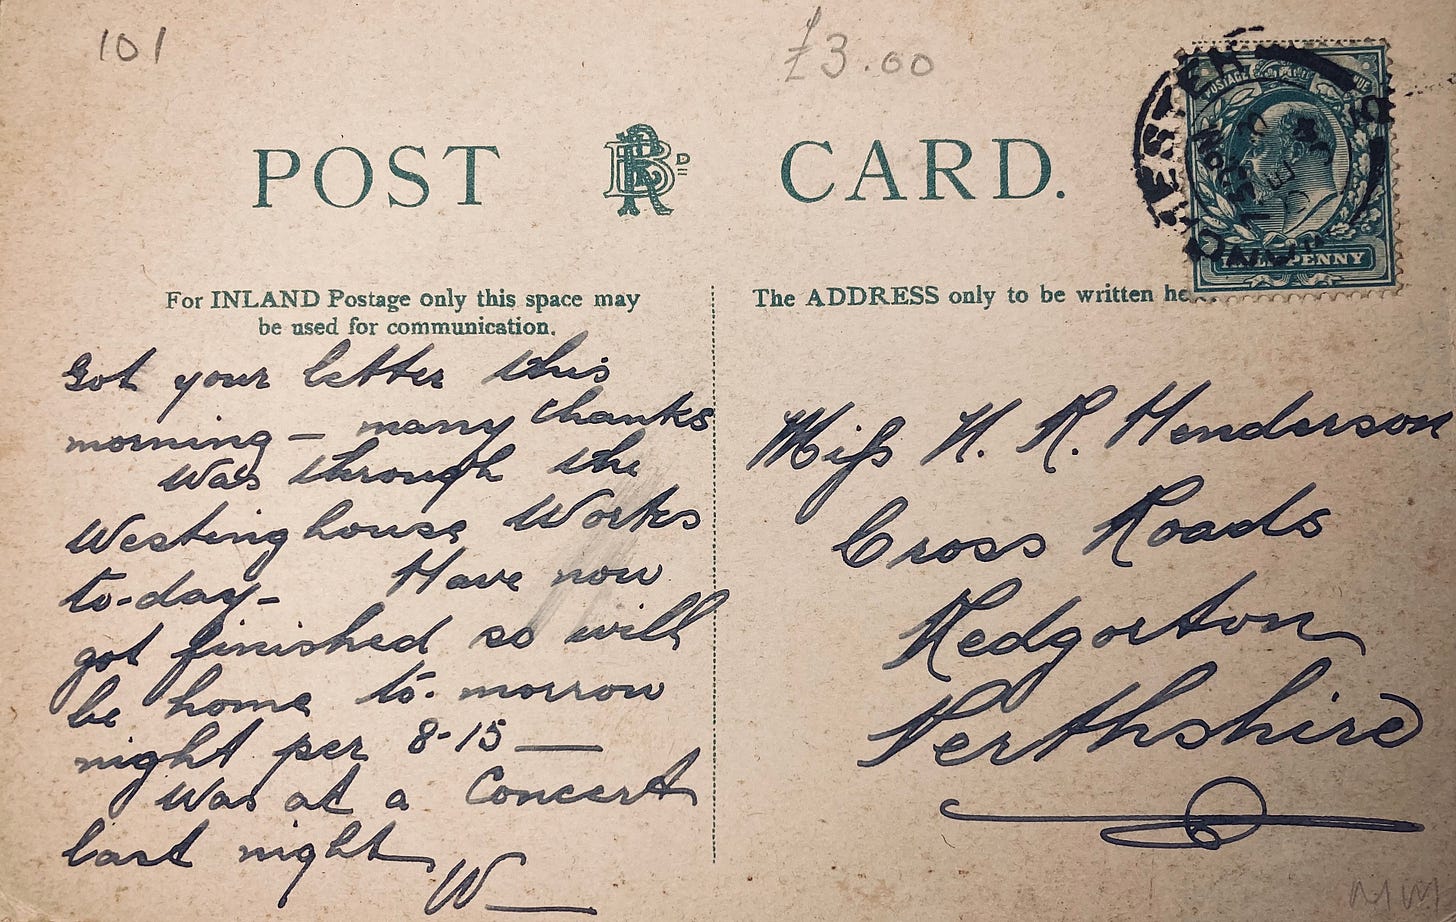 101
£3.00
POST CARD.
For INLAND Postage only this space may
be used for communication.
The ADDRESS only to be written
HALFPENNY
Got your letter this
morning – many thanks
Was through the
Westinghouse Works
to-day – Have now
got finished so will
be home to-morrow
night per 8-15 —
Was at a Concert
last night
W—
Miss N. R. Henderson
Cross Roads
Redgorton
Perthshire
MM